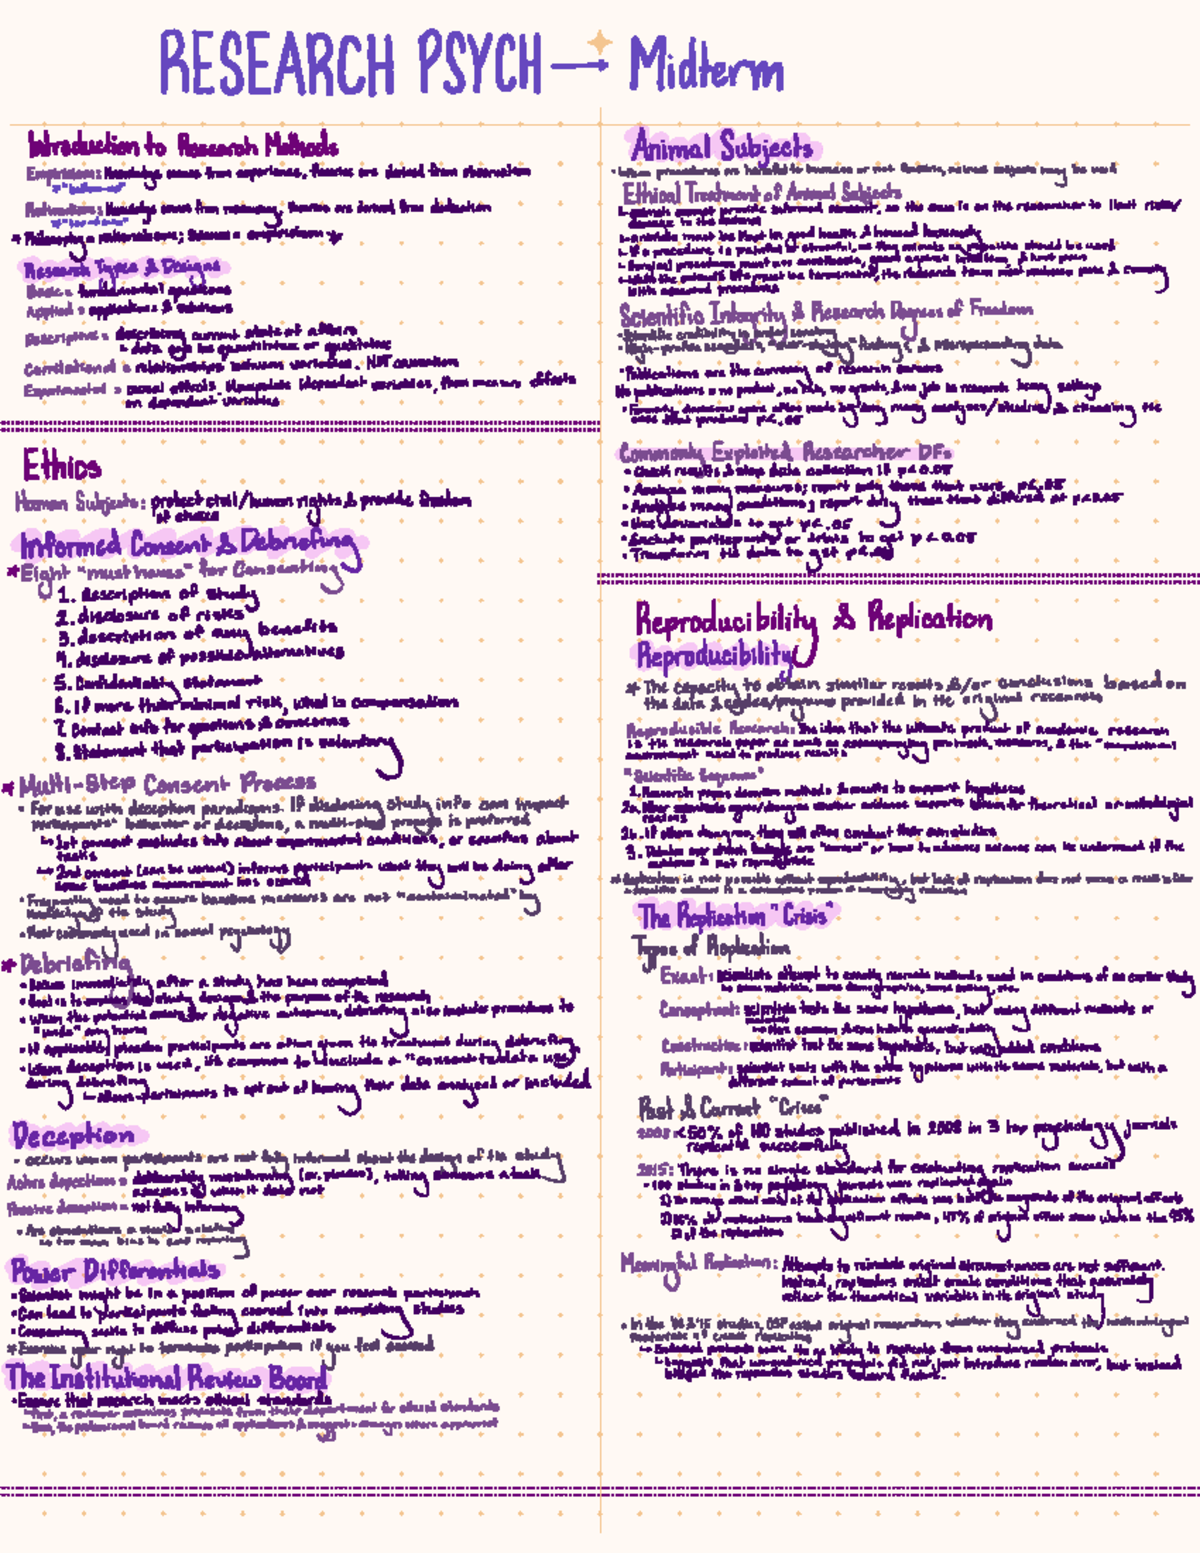 RESEARCH PSYCH → Midterm
Introduction to Research Methods
Empiricism: Knowledge comes from experience, theories are derived from observation
"bottom-up"
Rationalism: Knowledge comes from reasoning, theories are derived from deduction
"top-down"
* Philosophy = rationalism; Science = empiricism *
Research Types & Designs
Basic = fundamental questions
Applied = applications & solutions
Descriptive = describing current state of affairs
- data can be quantitative or qualitative
Correlational = relationships between variables. NOT causation
Experimental = causal effects. Manipulate independent variables, then measure effects
on dependent variables
Ethics
Human Subjects: protect civil/human rights & provide freedom
of choice
Informed Consent & Debriefing
* Eight "must haves" for Consenting
1. description of study
2. disclosure of risks
3. description of any benefits
4. disclosure of possible alternatives
5. Confidentiality statement
6. If more than minimal risk, what is compensation
7. Contact info for questions & concerns
8. Statement that participation is voluntary
* Multi-Step Consent Process
• For use with deception paradigms. If disclosing study info can impact
participants' behavior or decisions, a multi-step process is preferred
↳ 1st consent excludes info about experimental conditions, or specifics about
tasks
↳ 2nd consent (can be verbal) informs participants what they will be doing after
some baseline assessment has occurred
• Frequently used to ensure baseline measures are not "contaminated" by
knowledge of the study
• Most commonly used in social psychology
* Debriefing
• Occurs immediately after a study has been completed
• Goal is to explain the study design & the purpose of the research
• When the potential exists for negative outcomes, debriefing also includes procedures to
"undo" any harm
• If applicable, placebo participants are often given the treatment during debriefing
• When deception is used, it's common to include a "consent to data use"
during debriefing
↳ Allows participants to opt out of having their data analyzed or included
Deception
• occurs when participants are not fully informed about the design of the study
Active deception = deliberately misinforming (ex. placebo), telling someone a task
assesses x when it does not
Passive deception = not fully informing
Power Differentials
• Scientist might be in a position of power over research participants
• Can lead to participants feeling coerced into completing studies
• Consenting seeks to diffuse power differentials
* Exercise your right to terminate participation if you feel coerced
The Institutional Review Board
• Ensure that research meets ethical standards
- First, a reviewer examines proposals from their department for ethical standards
- Then, the institutional board reviews all applications & suggests changes where appropriate
Animal Subjects
• When procedures are harmful to humans or not feasible, animal subjects may be used
Ethical Treatment of Animal Subjects
↳ animals cannot provide informed consent, so the onus is on the researcher to limit risks/
damage to the animal
↳ animals must be kept in good health & housed humanely
↳ If a procedure is painful or stressful, as few animals as possible should be used
↳ Surgical procedures must use anesthesia, guard against infection, & limit pain
↳ When the animal's life must be terminated, the research team must minimize pain & comply
with accepted procedures
Scientific Integrity & Research Degrees of Freedom
• Publications are the currency of research careers
No publications = no product, no job, no grants, & no job in research heavy settings
Commonly Exploited Researcher DFs
• Check results & stop data collection if p<0.05
• Analyze many measures; report only those that were p<.05
• Analyze many conditions; report only those that differed at p<0.05
• Use covariates to get p<.05
• Exclude participants or trials to get p<0.05
• Transform the data to get p<.05
Reproducibility & Replication
Reproducibility
* The capacity to obtain similar results &/or conclusions based on
the data & codes/programs provided in the original research
Reproducible Research: The idea that the ultimate product of academic research
is the research paper as well as accompanying protocols, measures, & the "computational
environment used to produce results
1. Research papers describe methods & results to support hypothesis
2b. If others disagree, they will often conduct their own studies
The Replication "Crisis"
Types of Replication
Exact: scientists attempt to exactly recreate methods used in conditions of an earlier study
ie same materials, same demographics, same setting, etc.
Conceptual: scientists tests the same hypothesis, but using different methods or
Constructive: scientist test the same hypothesis, but with added conditions
Participant: scientist tests with the same hypotheses with the same materials, but with a
different subset of participants
Past & Current "Crises"
2008: <50% of 140 studies published in 2008 in 3 top psychology journals
replicated successfully
2015: There is no single standard for evaluating replication success
• 100 studies in 3 top psychology journals were replicated again
1) The mean effect size of the replication effects was half the magnitude of the original effects
Meaningful Replication: Attempts to reinstate original circumstances are not sufficient.
Instead, replicators must create conditions that accurately
reflect the theoretical variables in the original study